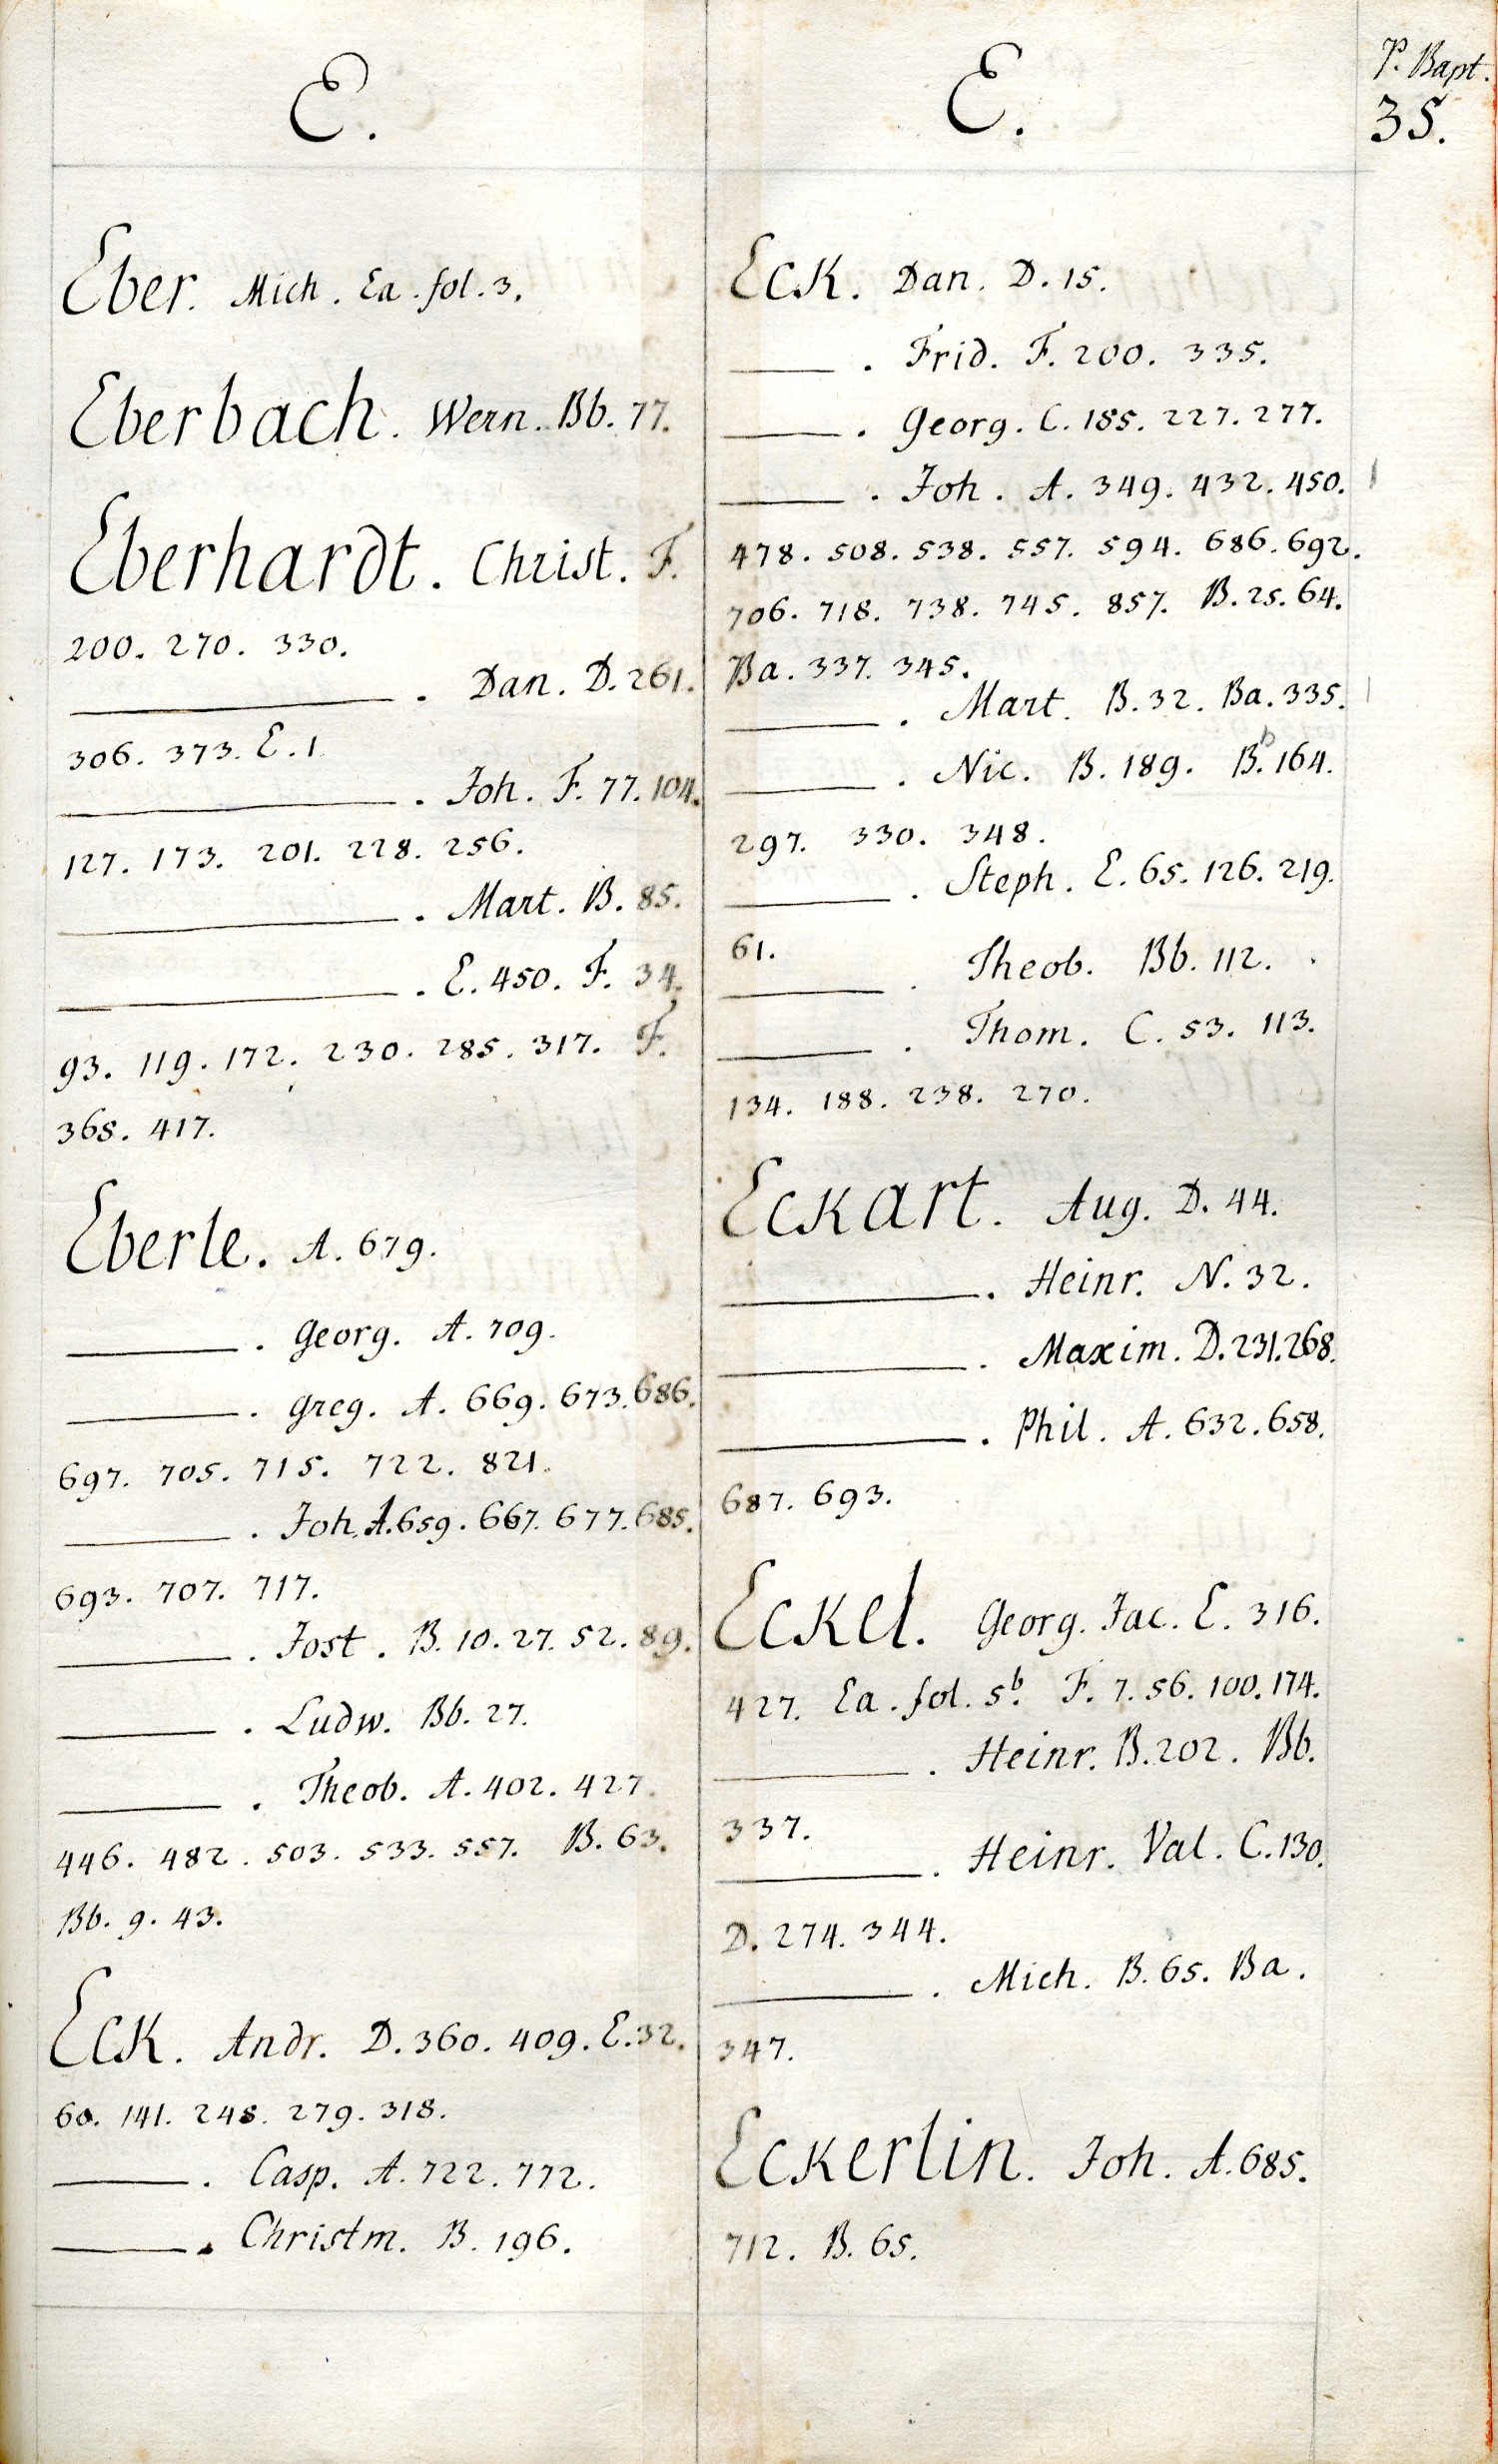 P. Bapt.
35.
E.
Eber. Mich. Ea. fol. 3.
Eberbach. Wern. Bb. 77.
Eberhardt. Christ. F.
200. 270. 330.
———. Dan. D. 261.
306. 373. E. 1.
———. Joh. F. 77. 104.
127. 173. 201. 228. 256.
———. Mart. B. 85.
———. E. 450. F. 34.
93. 119. 172. 230. 285. 317. F.
365. 417.
Eberle. A. 679.
———. Georg. A. 709.
———. Greg. A. 669. 673. 686.
697. 705. 715. 722. 821.
———. Joh. A. 659. 667. 677. 685.
693. 707. 717.
———. Jost. B. 10. 27. 52. 89.
———. Ludw. Bb. 27.
———. Theob. A. 402. 427.
446. 482. 503. 533. 557. B. 63.
Bb. 9. 43.
Eck. Andr. D. 360. 409. E. 32.
60. 141. 248. 279. 318.
———. Casp. A. 722. 772.
———. Christm. B. 196.
E.
Eck. Dan. D. 15.
———. Frid. F. 200. 335.
———. Georg. C. 185. 227. 277.
———. Joh. A. 349. 432. 450.
478. 508. 538. 557. 594. 686. 692.
706. 718. 738. 745. 857. B. 25. 64.
Ba. 337. 345.
———. Mart. B. 32. Ba. 335.
———. Nic. B. 189. Bb. 164.
297. 330. 348.
———. Steph. E. 65. 126. 219.
61.
———. Theob. Bb. 112.
———. Thom. C. 53. 113.
134. 188. 238. 270.
Eckart. Aug. D. 44.
———. Heinr. N. 32.
———. Maxim. D. 231. 268.
———. Phil. A. 632. 658.
687. 693.
Eckel. Georg. Jac. E. 316.
427. Ea. fol. 5b. F. 7. 56. 100. 174.
———. Heinr. B. 202. Bb.
337.
———. Heinr. Val. C. 130.
D. 274. 344.
———. Mich. B. 65. Ba.
347.
Eckerlin. Joh. A. 685.
712. B. 65.